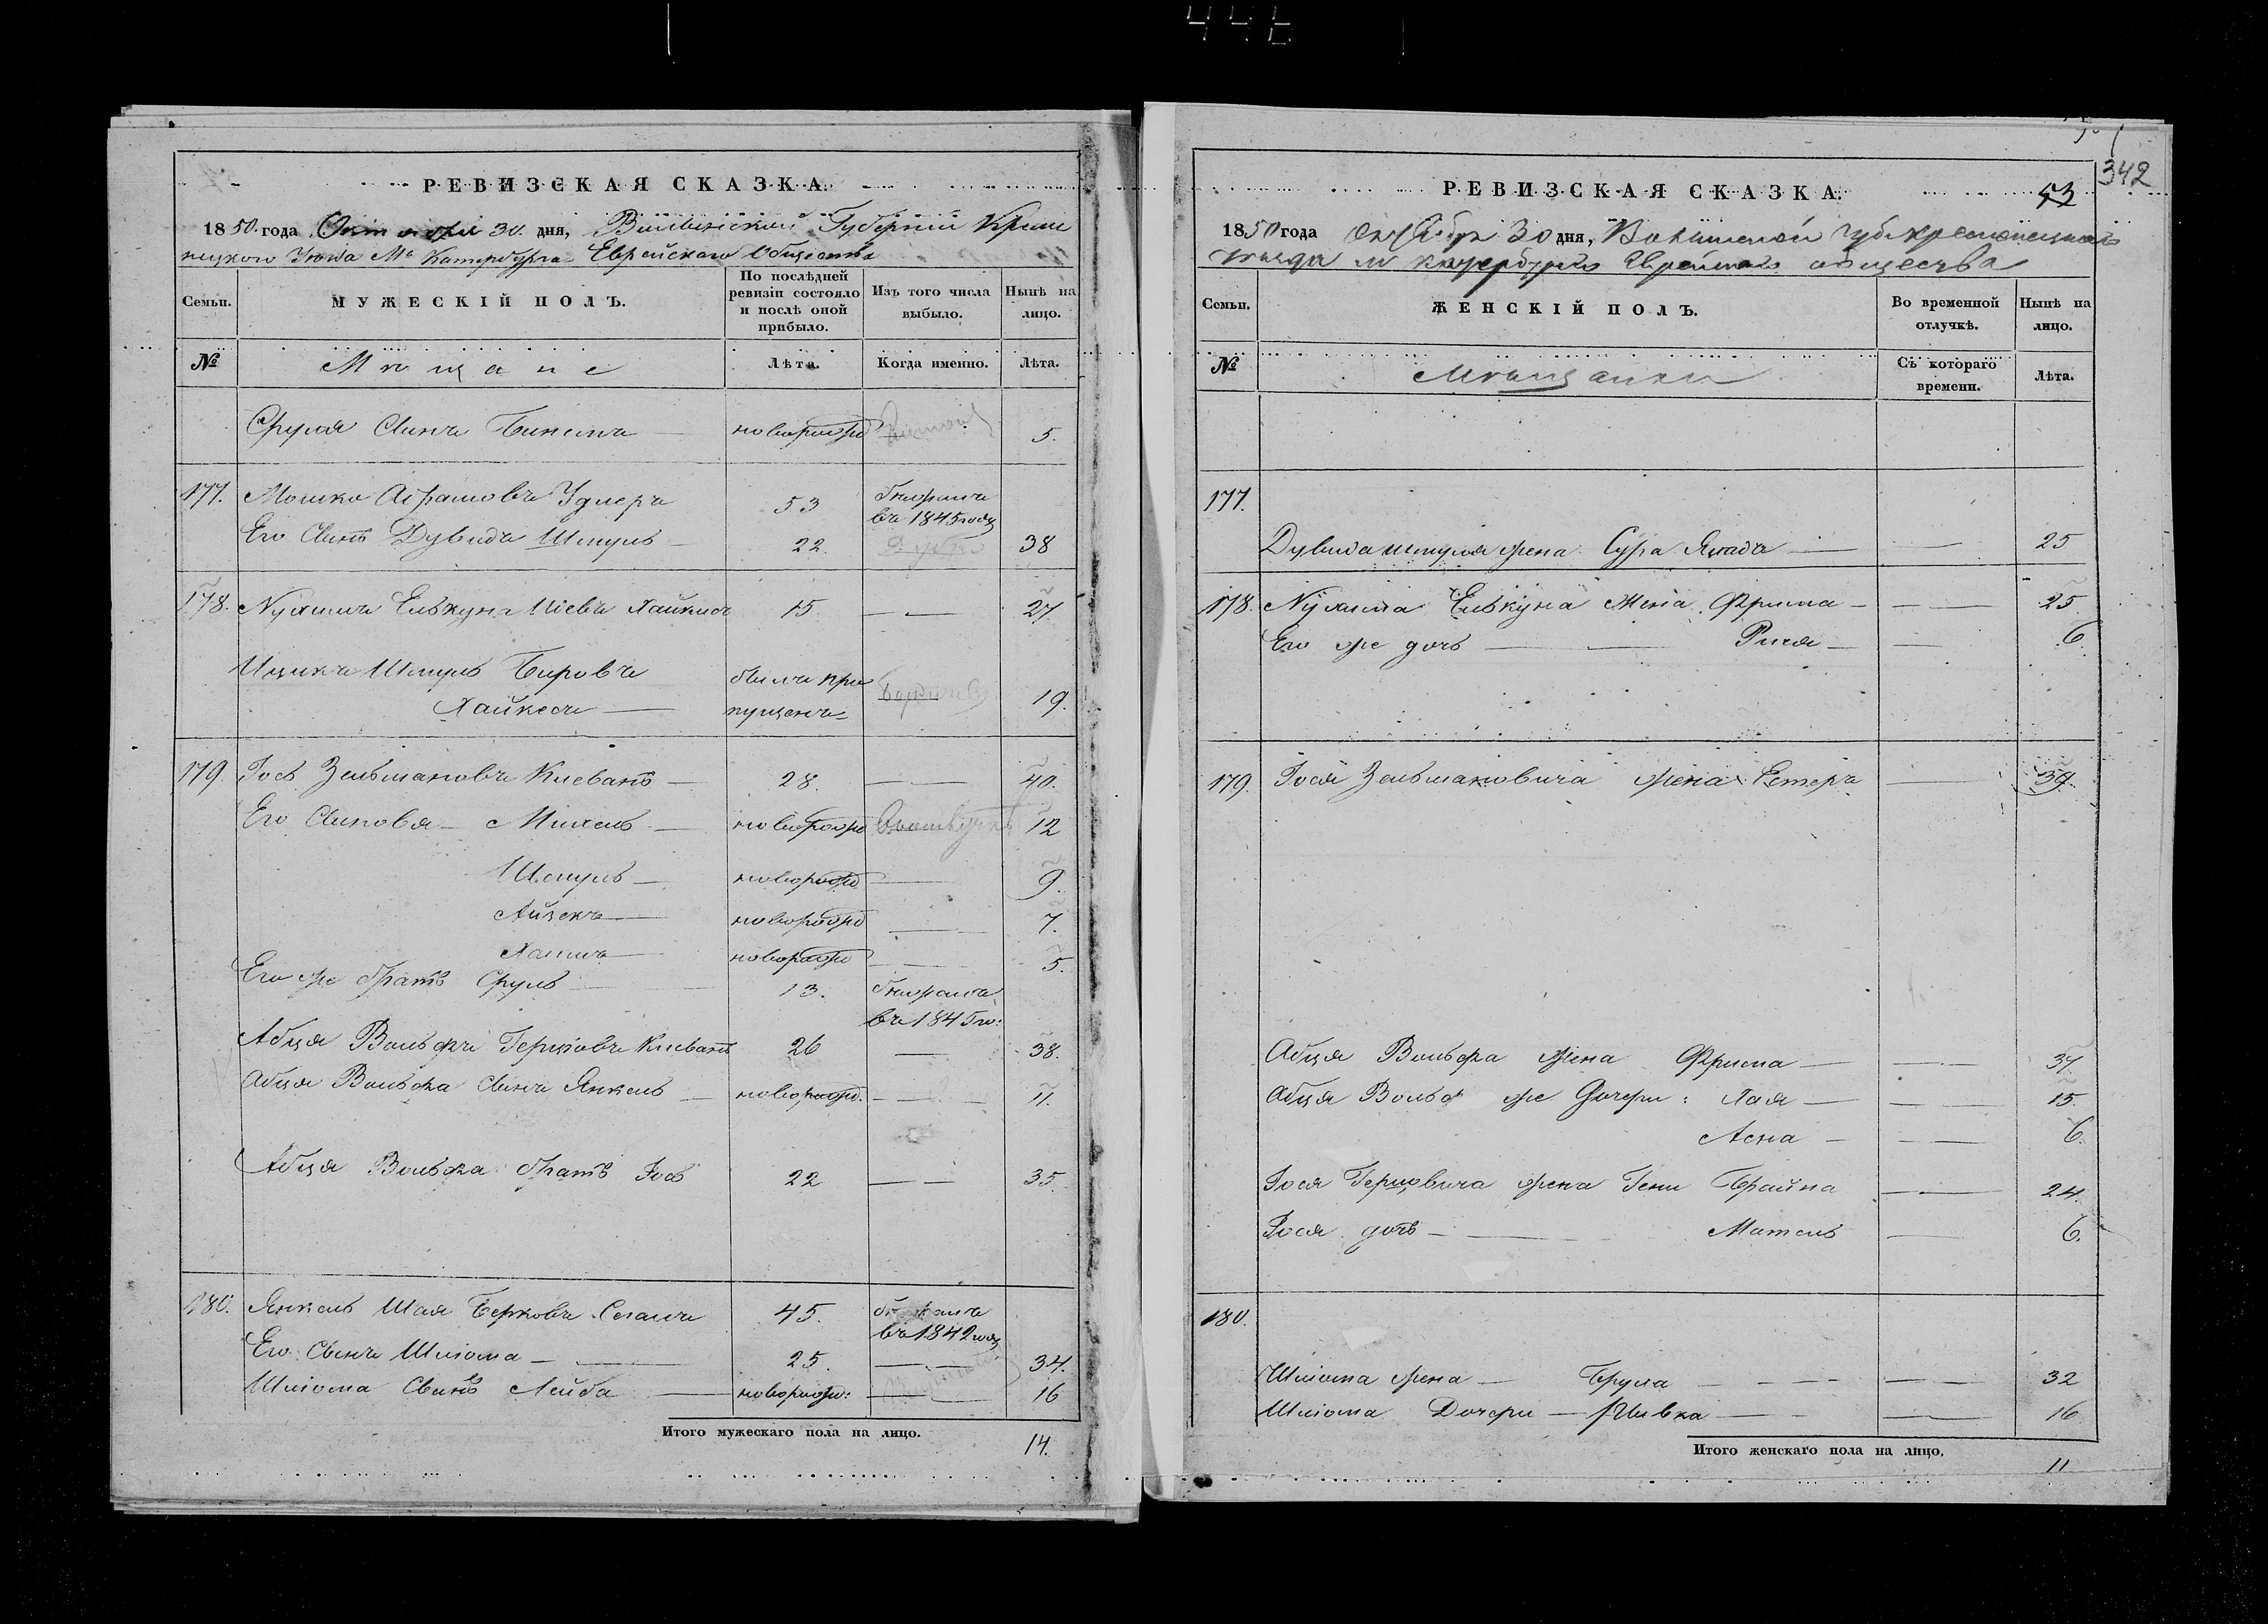 РЕВИЗСКАЯ СКАЗКА.
1850 года Октября 30 дня, Волынской Губернии Креме
нецкого Уезда М. Катербурга Еврейскаго Общества
Семьи.
МУЖЕСКІЙ ПОЛЪ.
По послѣдней ревизіи состояло и послѣ оной прибыло.
Изъ того числа выбыло.
Нынѣ на лицо.
№
Мѣщане
Лѣта.
Когда именно.
Лѣта.
Сруля Сынъ новорожд 5.
177. Мошко Абрамовъ Удлеръ 53
въ 1845 году
Его Сынъ Дувидъ Шмуль 22. 38
178. Нухимъ Елькуна Хайкисъ 15 27
Ицикъ Шмуль Беровъ былъ про
Хайкесъ пущенъ 19.
179. Іось Зельмановъ Клебанъ 28. 40.
Его Сыновья Михель новорожд 12
Шмуль новорожд 9.
Айзекъ новорожд 7.
Хаимъ новорожд 5.
Его же братъ Сруль 13.
въ 1845 го:
Абця Вольфъ Герцовъ Клебанъ 26 38.
Абця Вольфа Сынъ Янкель новорожд. 11.
Абця Вольфа братъ Іось 22 35.
180. Янкель Шая Берковъ Сегалъ 45.
въ 1842 году
Его Сынъ Шлiома 25. 34.
Шлiома Сынъ Лейба новорожд: 16
Итого мужескаго пола на лицо. 14.
342
53
РЕВИЗСКАЯ СКАЗКА.
1850 года Октября 30 дня, Волынской губ. Кременецкаго
уезда м Катербурга Еврейскаго общества
Семьи.
ЖЕНСКІЙ ПОЛЪ.
Во временной отлучкѣ.
Нынѣ на лицо.
№
Мѣщанки
Съ котораго времени.
Лѣта.
177.
Дувида Шмуля жена Сура 25
178. Нухима Елькуна жена Фрима 25
Его же дочь Рися 6
179. Іося Зельмановича жена Естеръ 39
Абця Вольфа жена Фрима 37.
Абця Вольф же Дочери: Хая 15
Асна 6.
Іося Герцовича жена Гени Брайна 24.
Іося дочь Матель 6.
180.
Шлiома жена Бруха 32
Шлiома Дочери Ривка 16
Итого женскаго пола на лицо. 11